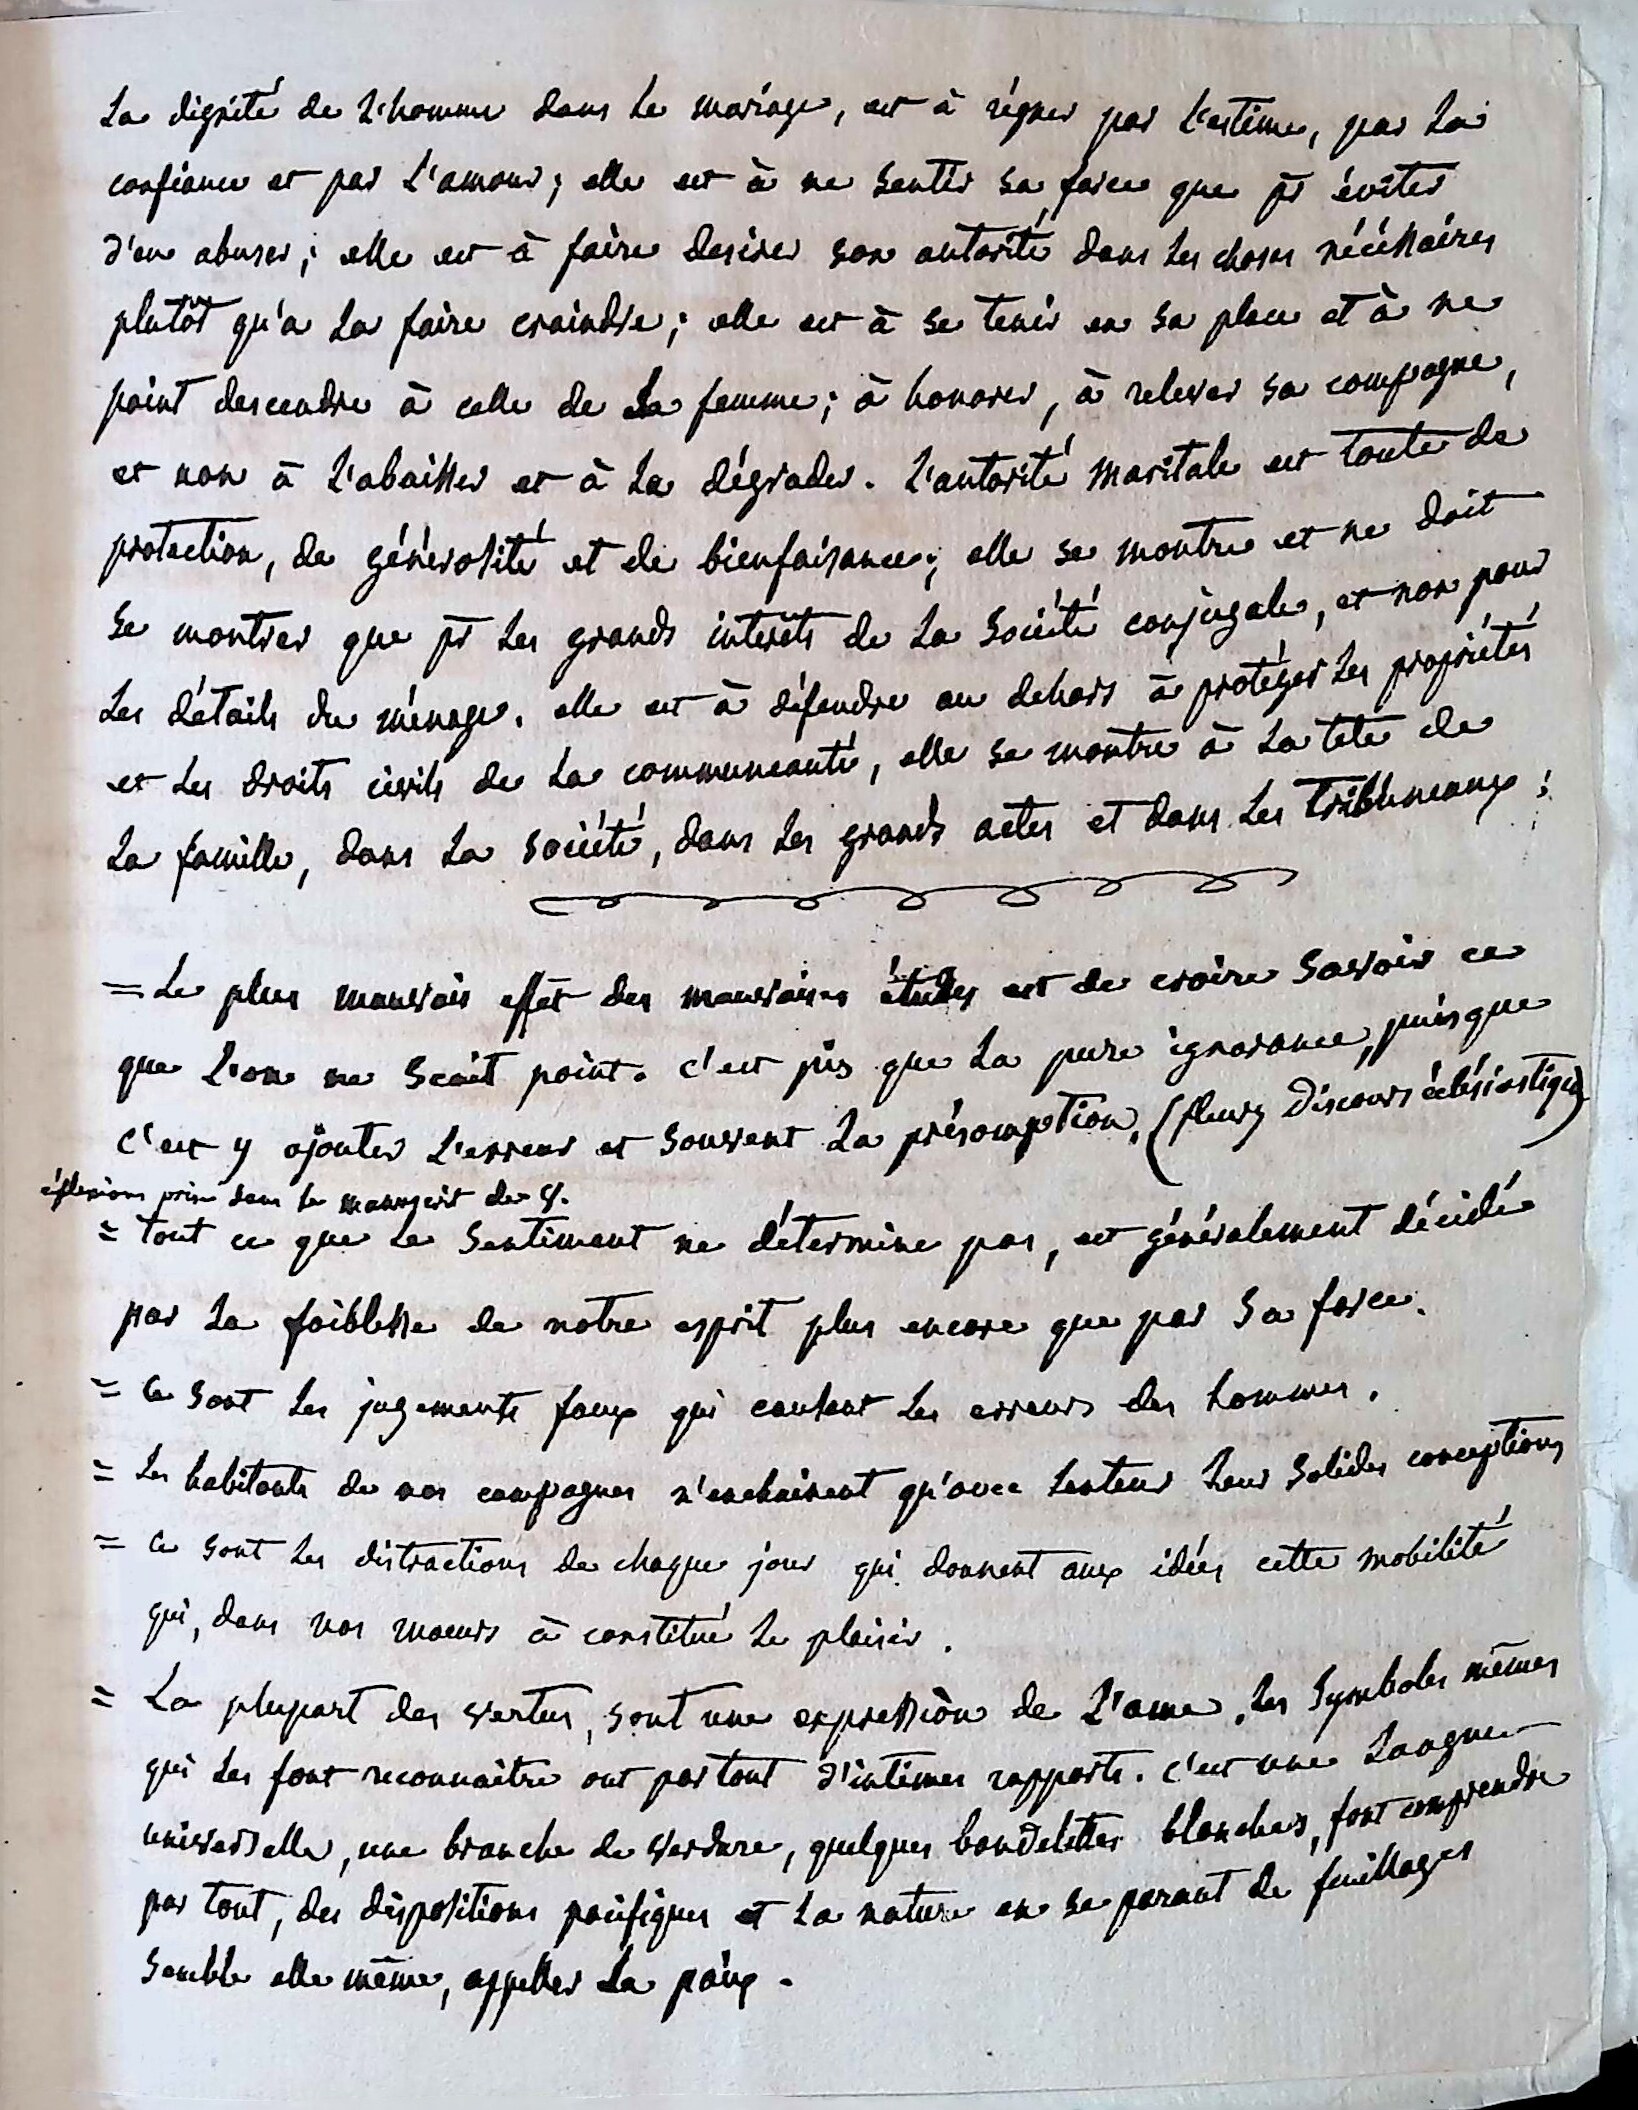 La dignité de l'homme dans le mariage, est à régner par l'estime, par la
confiance et par l'amour; elle est à ne sentir sa force que pr éviter
d'en abuser; elle est à faire desirer son autorité dans les choses nécéssaires
plutôt qu'a la faire craindre; elle est à se tenir en sa place et à ne
point descendre à celle de la femme; à honorer, à relever sa compagne,
et non à l'abaisser et à la dégrader. L'autorité maritale est toute de
protection, de générosité et de bienfaisance; elle se montre et ne doit
se montrer que pr les grands interêts de la Société conjugale, et non pour
les détails du ménage. elle est à défendre au dehors à protéger les propriétés
et les droits civils de la communeauté, elle se montre à la tete de
la famille, dans la société, dans les grands actes et dans les tribuneaux;
= Le plus mauvais effet des mauvaises études est de croire savoir ce
que l'on ne scait point. c'est pis que la pure ignorance, puisque
c'est y ajouter l'erreur et souvent la présomption. (fleury Discours éclésiastique)
éflexions prise dans le manuscrit de
= tout ce que le sentiment ne détermine pas, est généralement décidé
par la foiblesse de notre esprit plus encore que par sa force.
= ce sont les jugements faux qui causent les erreurs des hommes.
= les habitants de nos campagnes n'enchainent qu'avec lenteur leur solides conceptions
= ce sont les distractions de chaque jour qui donnent aux idées cette mobilité
qui, dans nos moeurs à constitué le plaisir.
= La plupart des vertus, sont une expression de l'ame. les symboles mêmes
qui les font reconnaitre ont partout d'intimes rapports. c'est une langue
universelle, une branche de verdure, quelques bandelettes blanches, font comprendre
par tout, des dispositions pacifiques et la nature en se parant de feuillages
semble elle même, appeller la paix.